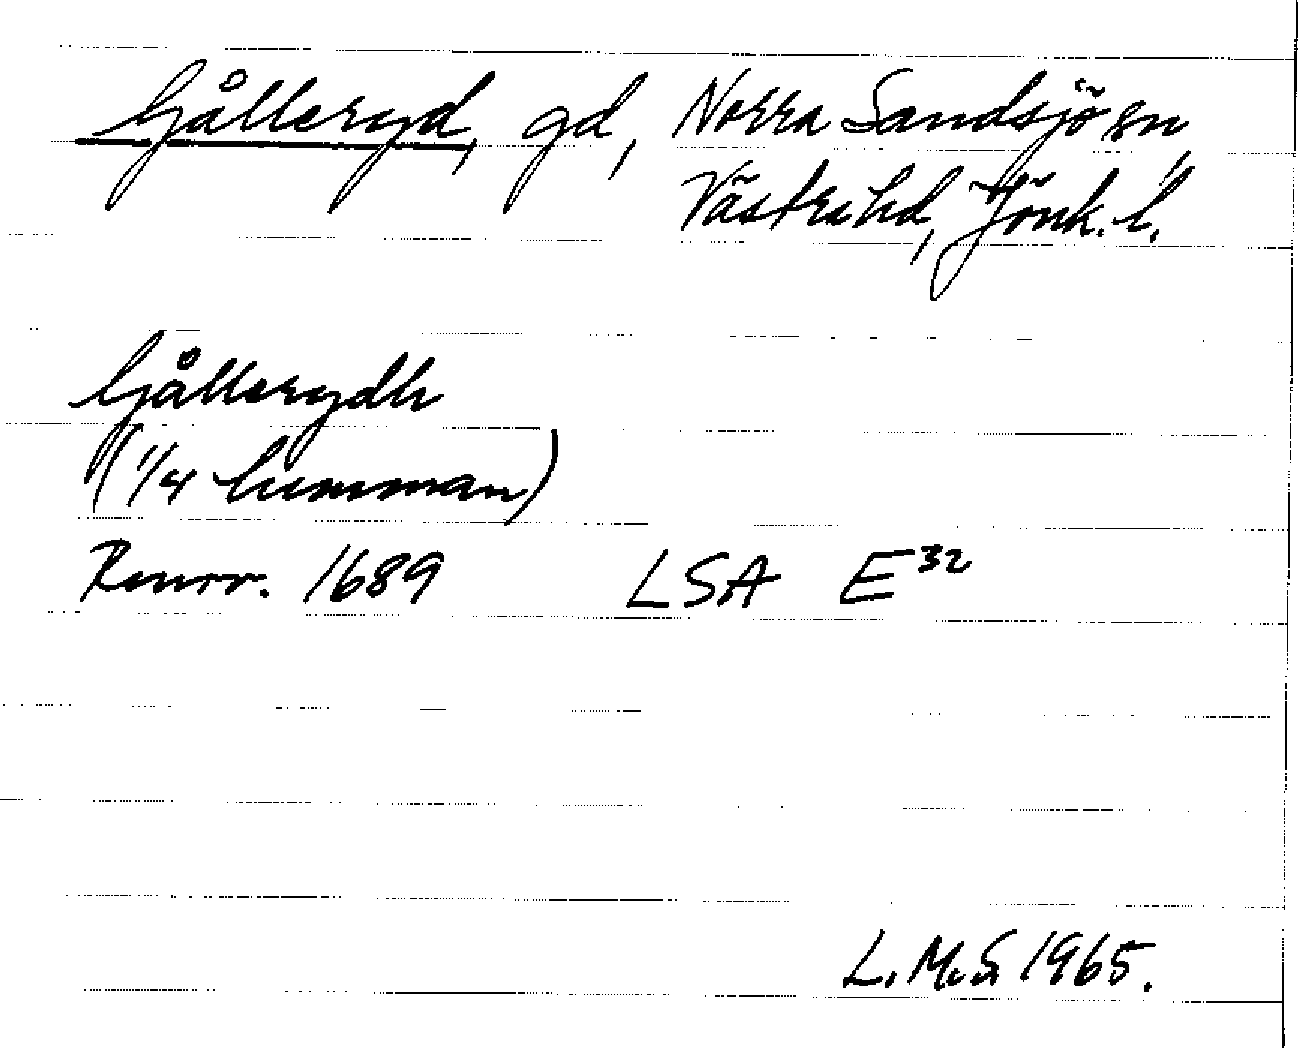 Gålleryd, gd, Norra Sandsjö sn
Västra hd, Jönk. l.
Gållerydh
(1/4 humman)
Renov. 1689 LSA E 32
L. M. S 1965.